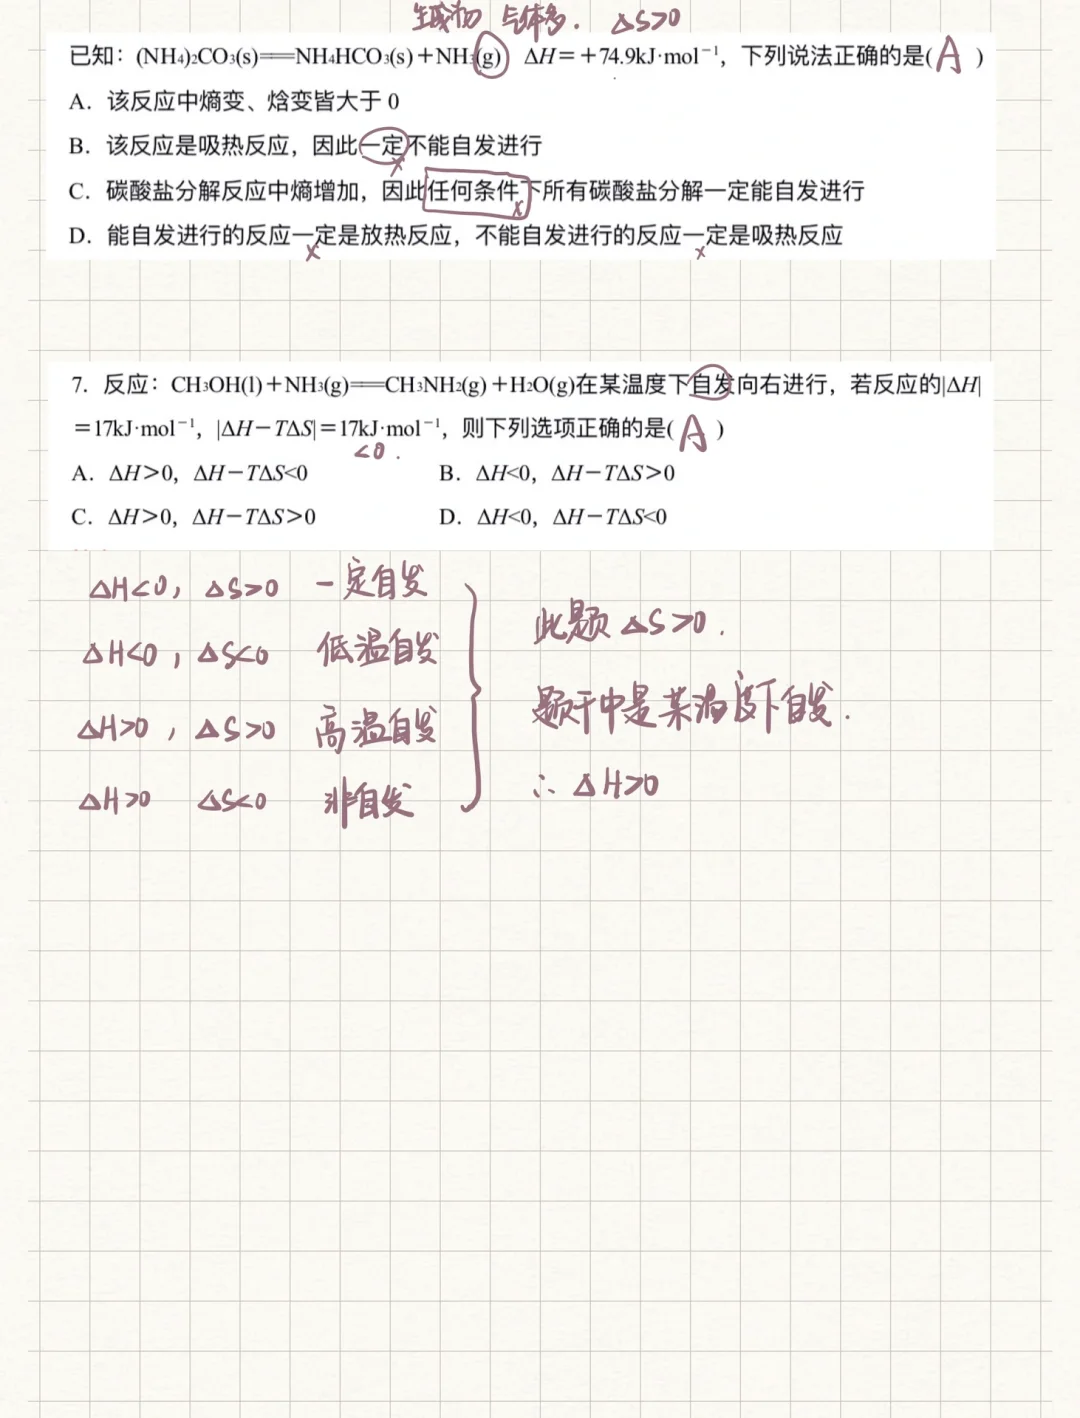 生成物 气体多. △S>0
已知：(NH₄)₂CO₃(s)══NH₄HCO₃(s)＋NH₃(g) ΔH＝＋74.9kJ·mol⁻¹，下列说法正确的是( A )
A．该反应中熵变、焓变皆大于 0
B．该反应是吸热反应，因此一定不能自发进行
x
C．碳酸盐分解反应中熵增加，因此任何条件下所有碳酸盐分解一定能自发进行
x
D．能自发进行的反应一定是放热反应，不能自发进行的反应一定是吸热反应
x x
7．反应：CH₃OH(l)＋NH₃(g)══CH₃NH₂(g)＋H₂O(g)在某温度下自发向右进行，若反应的|ΔH|
＝17kJ·mol⁻¹，|ΔH－TΔS|＝17kJ·mol⁻¹，则下列选项正确的是( A )
<0 .
A．ΔH＞0，ΔH－TΔS<0 B．ΔH<0，ΔH－TΔS＞0
C．ΔH＞0，ΔH－TΔS＞0 D．ΔH<0，ΔH－TΔS<0
△H<0, △S>0 一定自发
△H<0, △S<0 低温自发
△H>0, △S>0 高温自发
△H>0 △S<0 非自发
此题 △S>0.
题干中是某温度下自发.
∴ △H>0